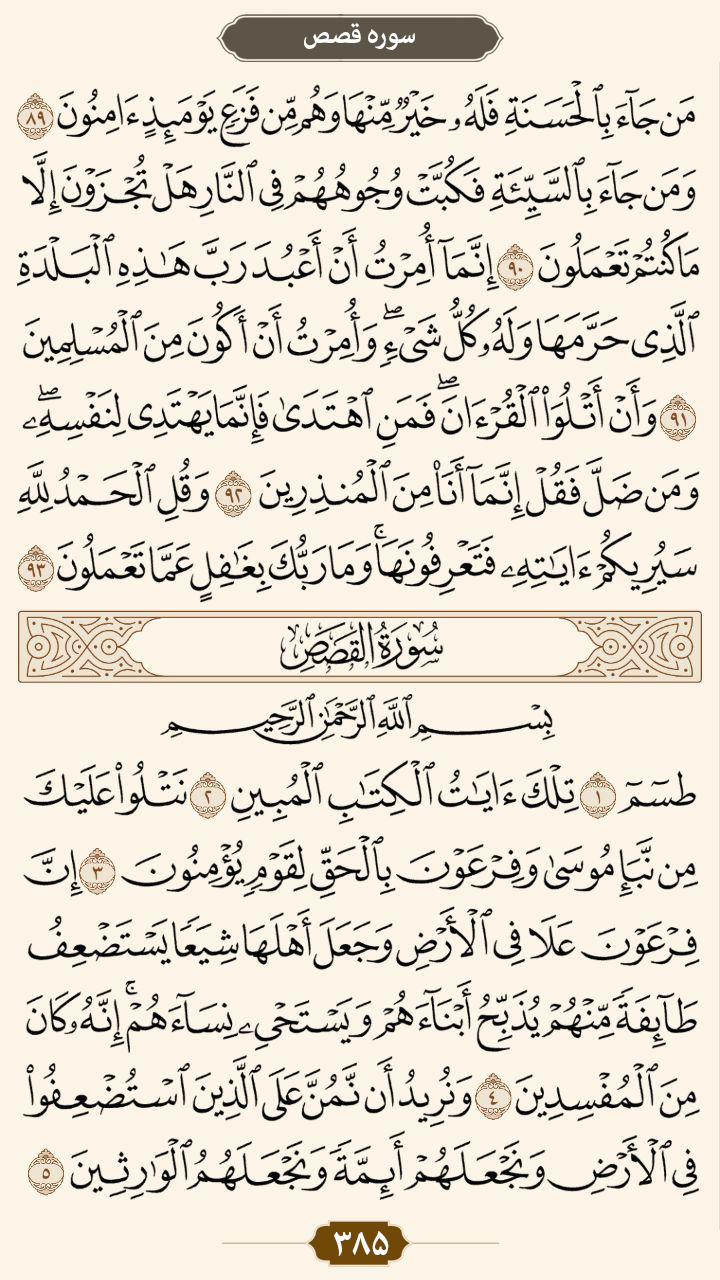 سوره قصص
مَن جَآءَ بِٱلْحَسَنَةِ فَلَهُۥ خَيْرٌ مِّنْهَا وَهُم مِّن فَزَعٍ يَوْمَئِذٍ ءَامِنُونَ ٨٩
وَمَن جَآءَ بِٱلسَّيِّئَةِ فَكُبَّتْ وُجُوهُهُمْ فِى ٱلنَّارِ هَلْ تُجْزَوْنَ إِلَّا
مَا كُنتُمْ تَعْمَلُونَ ٩٠ إِنَّمَآ أُمِرْتُ أَنْ أَعْبُدَ رَبَّ هَـٰذِهِ ٱلْبَلْدَةِ
ٱلَّذِى حَرَّمَهَا وَلَهُۥ كُلُّ شَىْءٍ ۖ وَأُمِرْتُ أَنْ أَكُونَ مِنَ ٱلْمُسْلِمِينَ
٩١ وَأَنْ أَتْلُوَا۟ ٱلْقُرْءَانَ ۖ فَمَنِ ٱهْتَدَىٰ فَإِنَّمَا يَهْتَدِى لِنَفْسِهِۦ ۖ
وَمَن ضَلَّ فَقُلْ إِنَّمَآ أَنَا۠ مِنَ ٱلْمُنذِرِينَ ٩٢ وَقُلِ ٱلْحَمْدُ لِلَّهِ
سَيُرِيكُمْ ءَايَـٰتِهِۦ فَتَعْرِفُونَهَا ۚ وَمَا رَبُّكَ بِغَـٰفِلٍ عَمَّا تَعْمَلُونَ ٩٣
سُورَةُ القَصَصِ
بِسْمِ ٱللَّهِ ٱلرَّحْمَـٰنِ ٱلرَّحِيمِ
طسٓمٓ ١ تِلْكَ ءَايَـٰتُ ٱلْكِتَـٰبِ ٱلْمُبِينِ ٢ نَتْلُوا۟ عَلَيْكَ
مِن نَّبَإِ مُوسَىٰ وَفِرْعَوْنَ بِٱلْحَقِّ لِقَوْمٍ يُؤْمِنُونَ ٣ إِنَّ
فِرْعَوْنَ عَلَا فِى ٱلْأَرْضِ وَجَعَلَ أَهْلَهَا شِيَعًا يَسْتَضْعِفُ
طَآئِفَةً مِّنْهُمْ يُذَبِّحُ أَبْنَآءَهُمْ وَيَسْتَحْىِۦ نِسَآءَهُمْ ۚ إِنَّهُۥ كَانَ
مِنَ ٱلْمُفْسِدِينَ ٤ وَنُرِيدُ أَن نَّمُنَّ عَلَى ٱلَّذِينَ ٱسْتُضْعِفُوا۟
فِى ٱلْأَرْضِ وَنَجْعَلَهُمْ أَئِمَّةً وَنَجْعَلَهُمُ ٱلْوَٰرِثِينَ ٥
٣٨٥